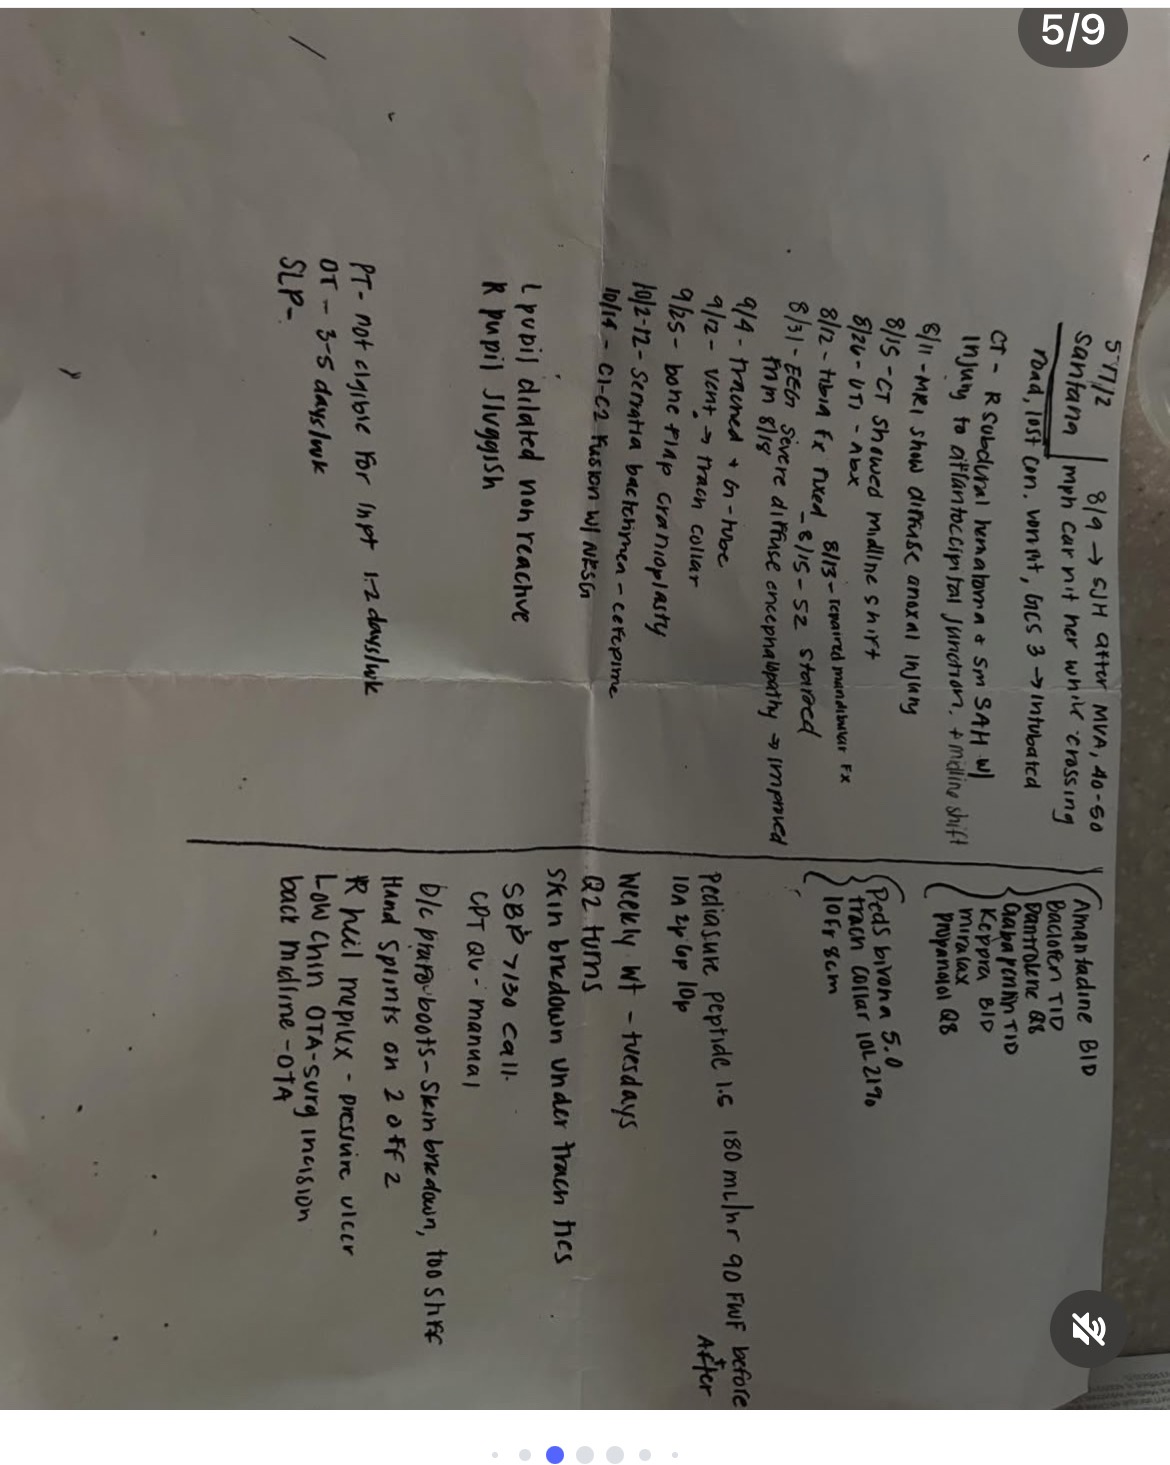 5/9
5 Y 7/12
Santana
8/9 → SJH after MVA, 40-50
mph car hit her while crossing
road, lost con. vomit, GCS 3 → intubated
CT - R subdural hematoma & sm SAH w/
injury to atlantoccipital junction. + midline shift
8/11 - MRI show diffuse anoxal injury
8/15 - CT showed midline shift
8/26 - UTI - Abx
8/12 - tibia fx fixed 8/13 - repaired mandibular fx
8/31 - EEG severe diffuse encephalopathy → improved
from 8/18
8/15 - SZ started
9/4 - trached + G-tube
9/12 - vent → trach collar
9/25 - bone flap cranioplasty
10/2-12 - Serratia - cefepime
10/14 - C1-C2 fusion w/ NRSG
L pupil dilated non reactive
R pupil sluggish
PT - not eligible for inpt 1-2 days/wk
OT - 3-5 days/wk
SLP -
Amantadine BID
Baclofen TID
Dantrolene Q8
Gabapentin TID
Keppra BID
miralax
propanolol Q8
Peds bivona 5.0
trach collar 10L 21%
10Fr 8cm
Pediasure peptide 1.5 180 mL/hr 90 FWF before
+ After
10a 2p 6p 10p
Weekly wt - tuesdays
Q2 turns
skin brkdown under trach ties
SBP > 130 call.
CPT Q6 - manual
D/c prafo boots - skin brkdown, too stiff
Hand splints on 2 off 2
R heil mepilex - pressure ulcer
Low chin OTA - surg incision
back midline - OTA